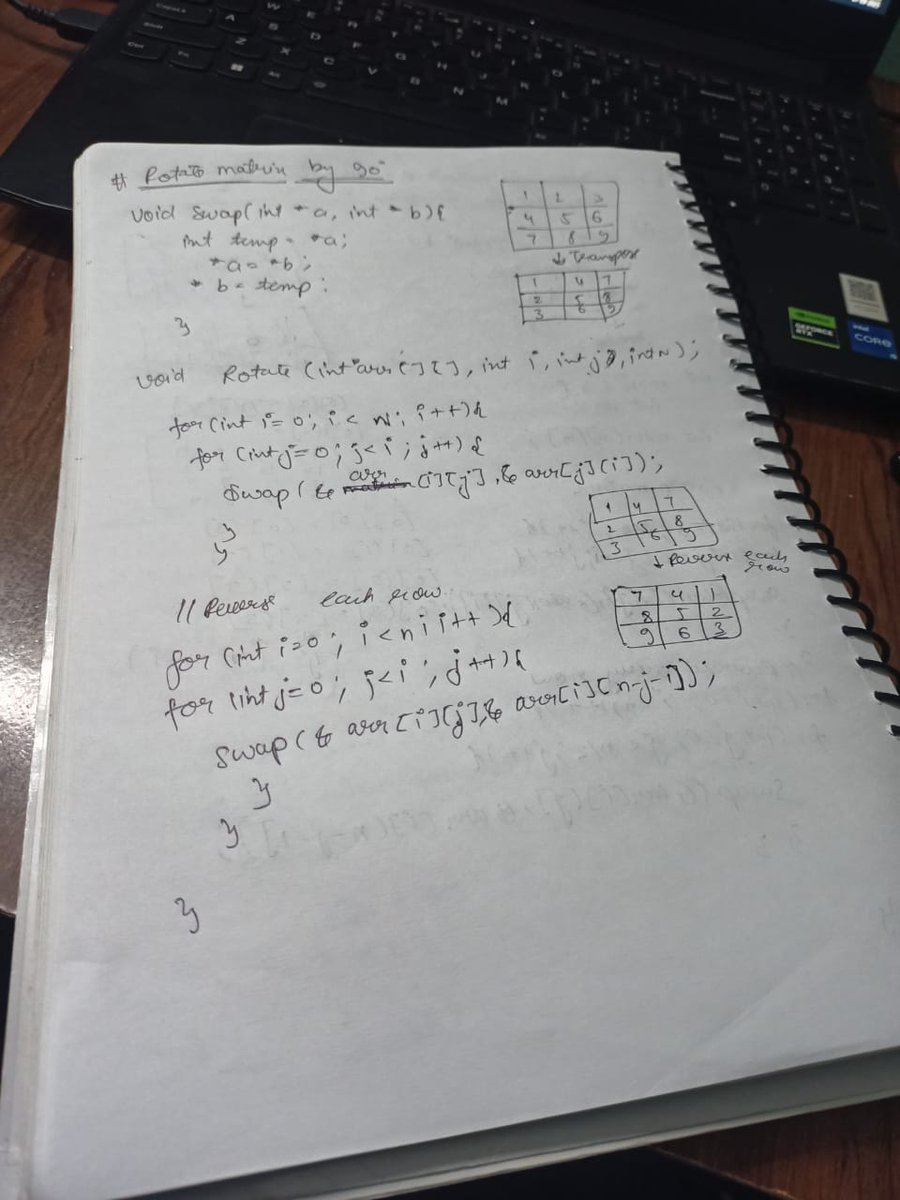 # Rotate matrix by 90°
void swap(int *a, int *b){
int temp = *a;
*a = *b;
* b = temp;
}
1 2 3
4 5 6
7 8 9
↓ Transpose
1 4 7
2 5 8
3 6 9
void Rotate (int *arr[][], int i, int j, int N);
for(int i=0; i< N; i++){
for (int j=0; j<i; j++) {
Swap(& arr[i][j], & arr[j][i]);
}
}
1 4 7
2 5 8
3 6 9
↓ Reverse each row
7 4 1
8 5 2
9 6 3
// Reverse each row
for (int i=0; i<n; i++){
for (int j=0; j<i; j++){
swap(& arr[i][j], & arr[i][n-j-i]);
}
}
}
GEFORCE
RTX
intel
CORE
i5
CapsLk
Shift
Ctrl
Fn
Alt
A
S
D
F
G
H
J
K
L
Z
X
C
V
B
N
M
W
E